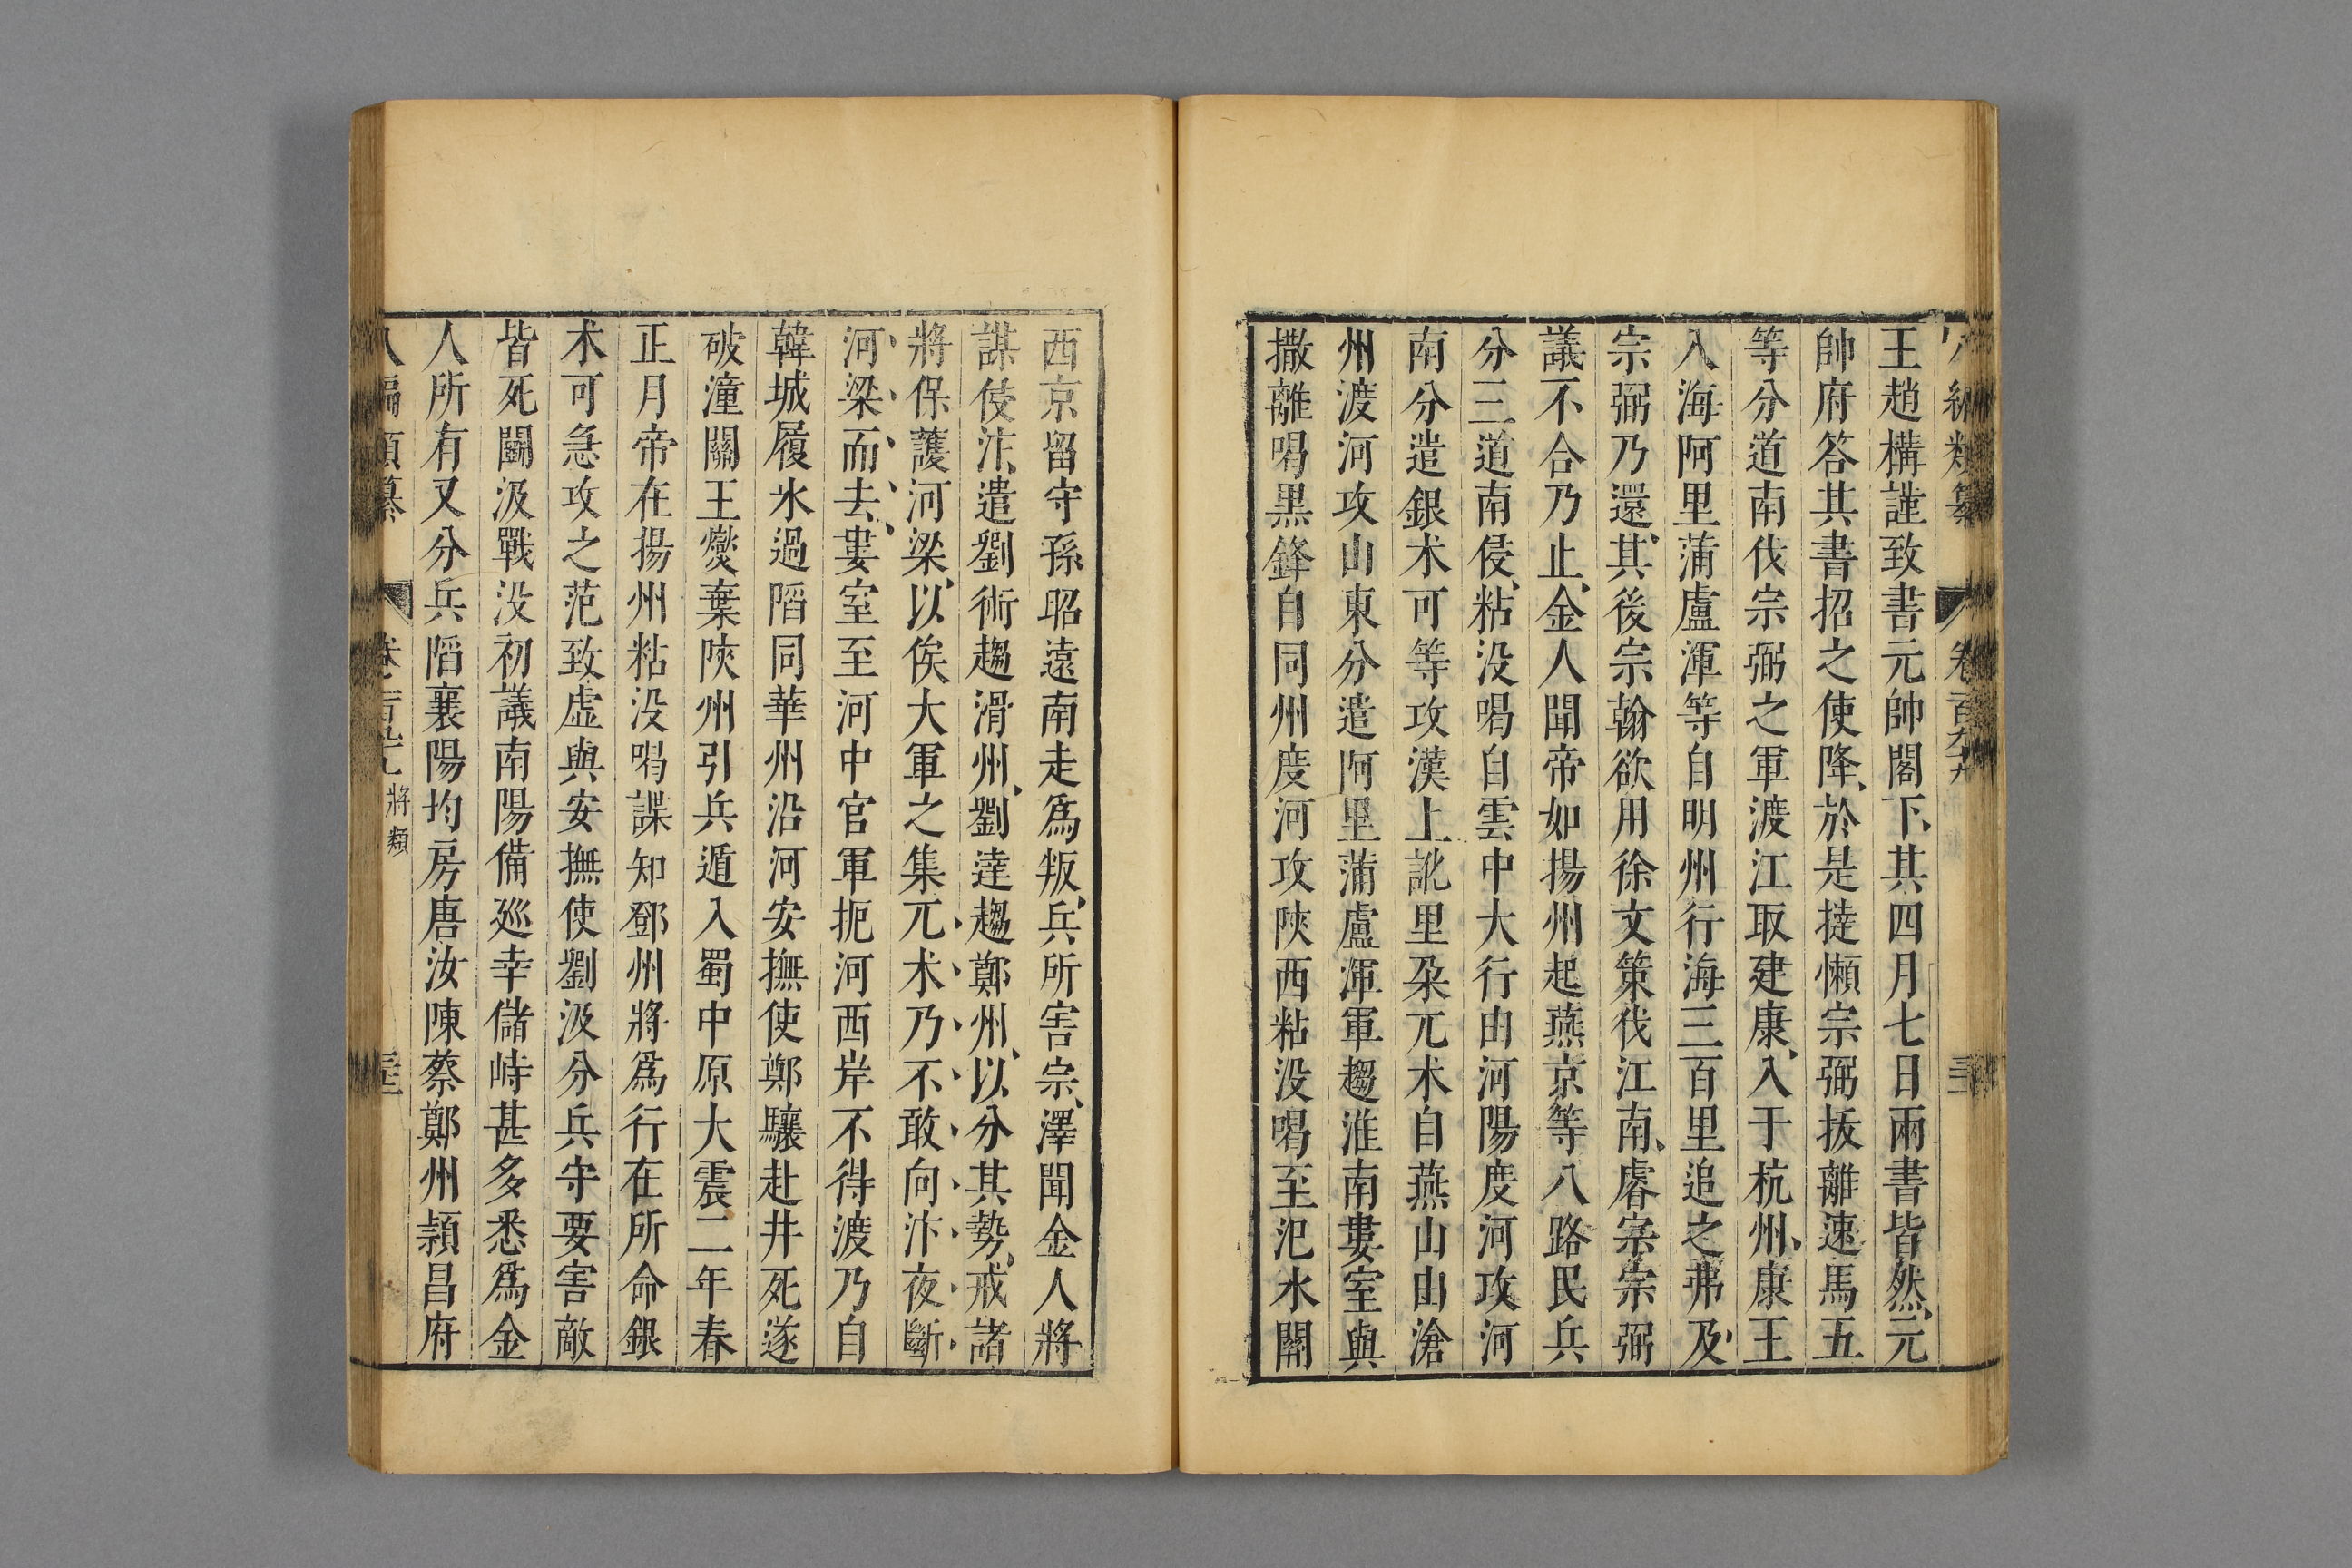 八編類纂 卷一百九十九
王趙構謹致書元帥閣下其四月七日兩書皆然元
帥府答其書招之使降於是撻懶宗弼拔離速馬五
等分道南伐宗弼之軍渡江取建康入于杭州康王
入海阿里蒲盧渾等自明州行海三百里追之弗及
宗弼乃還其後宗翰欲用徐文策伐江南睿宗宗弼
議不合乃止金人聞帝如揚州起燕京等八路民兵
分三道南侵粘没喝自雲中大行由河陽度河攻河
南分遣銀术可等攻漢上訛里朶兀术自燕山由滄
州渡河攻山東分遣阿里蒲盧渾軍趨淮南婁室與
撒離喝黑鋒自同州度河攻陝西粘没喝至汜水關
西京留守孫昭遠南走爲叛兵所害宗澤聞金人將
謀侵汴遣劉衍趨滑州劉達趨鄭州以分其勢戒諸
將保護河梁以俟大軍之集兀术乃不敢向汴夜斷
河梁而去婁室至河中官軍扼河西岸不得渡乃自
韓城履氷過陷同華州沿河安撫使鄭驤赴井死遂
破潼關王爕棄陝州引兵遁入蜀中原大震二年春
正月帝在揚州粘没喝諜知鄧州將爲行在所命銀
术可急攻之范致虛與安撫使劉汲分兵守要害敵
皆死鬭汲戰没初議南陽備廵幸儲峙甚多悉爲金
人所有又分兵陷襄陽均房唐汝陳蔡鄭州潁昌府
八編類纂 將類